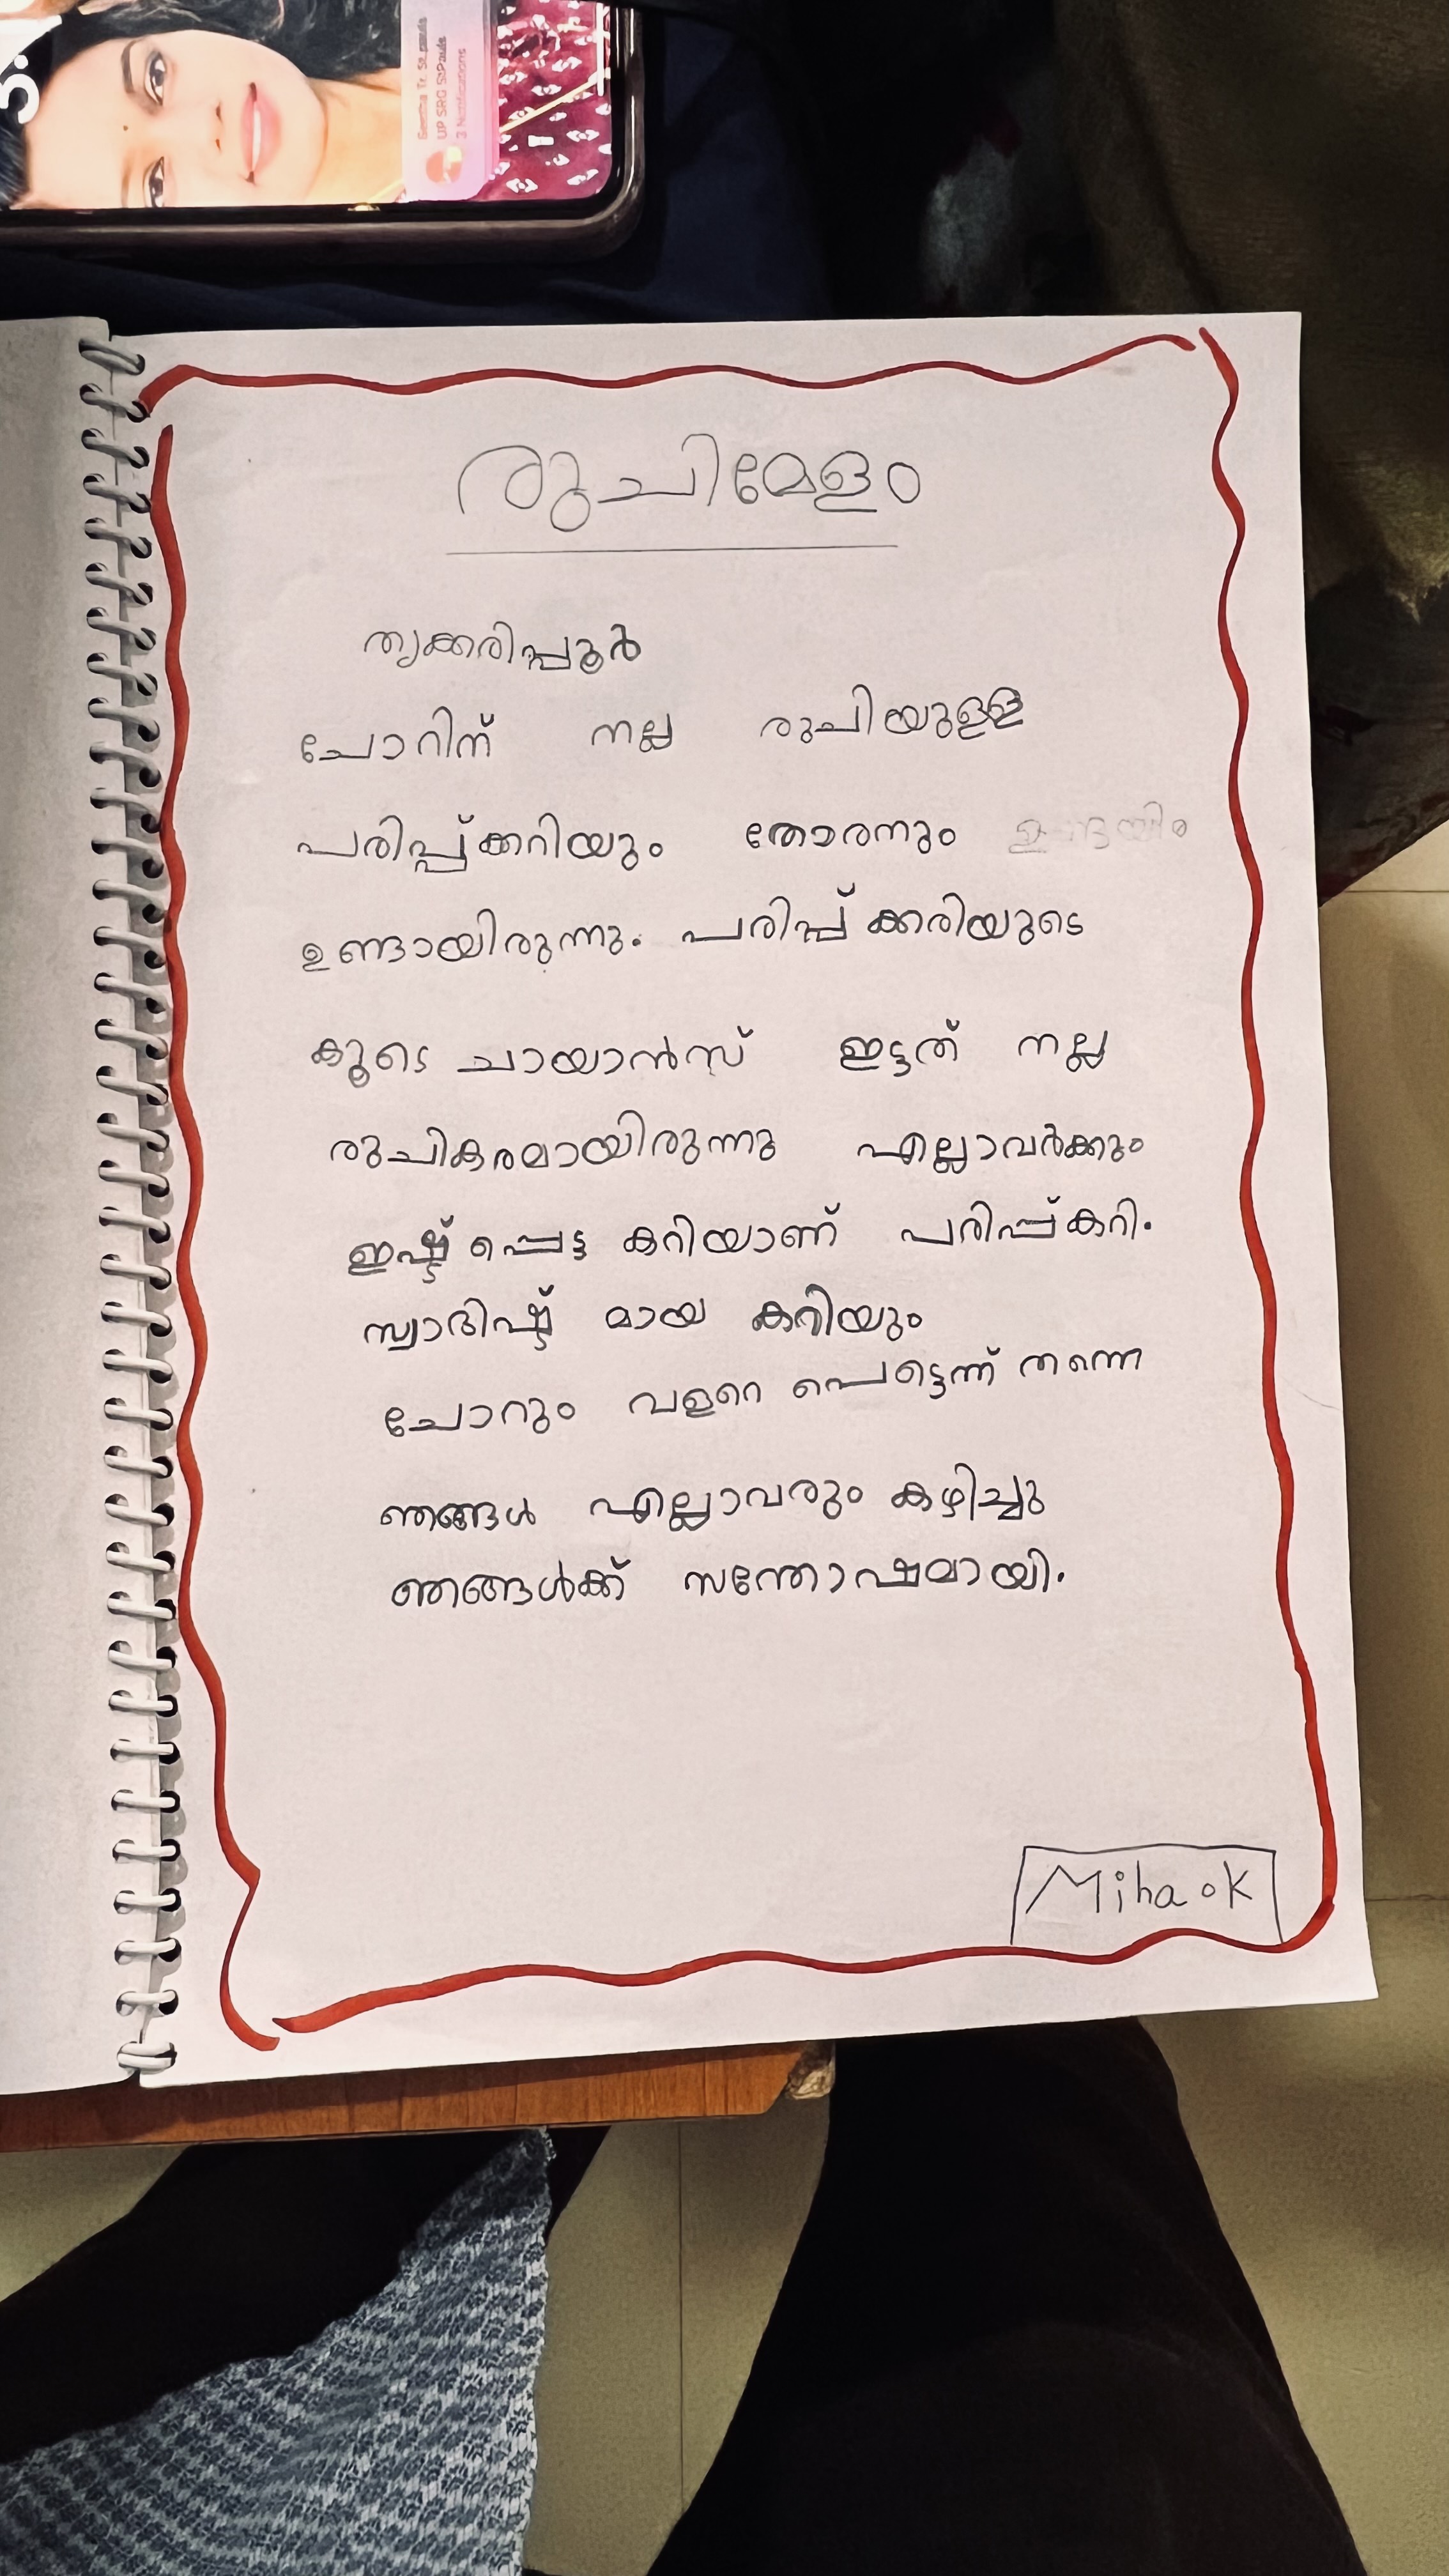 Seema Tr. St. pauls
UP SRG StPauls
3 Notifications
രുചിമേളം
തൃക്കരിപ്പൂർ
ചോറിന് നല്ല രുചിയുള്ള
പരിപ്പ്ക്കറിയും തോരനും
ഉണ്ടായിരുന്നു. പരിപ്പ് ക്കരിയുടെ
കൂടെ ചായാൻസ് ഇട്ടത് നല്ല
രുചികരമായിരുന്നു എല്ലാവർക്കും
ഇഷ്ട് പ്പെട്ട കറിയാണ് പരിപ്പ്കറി.
സ്വാദിഷ്ട് മായ കറിയും
ചോറും വളറെ പെട്ടെന്ന് തന്നെ
ഞങ്ങൾ എല്ലാവരും കഴിച്ചു
ഞങ്ങൾക്ക് സന്തോഷമായി.
Miha ok